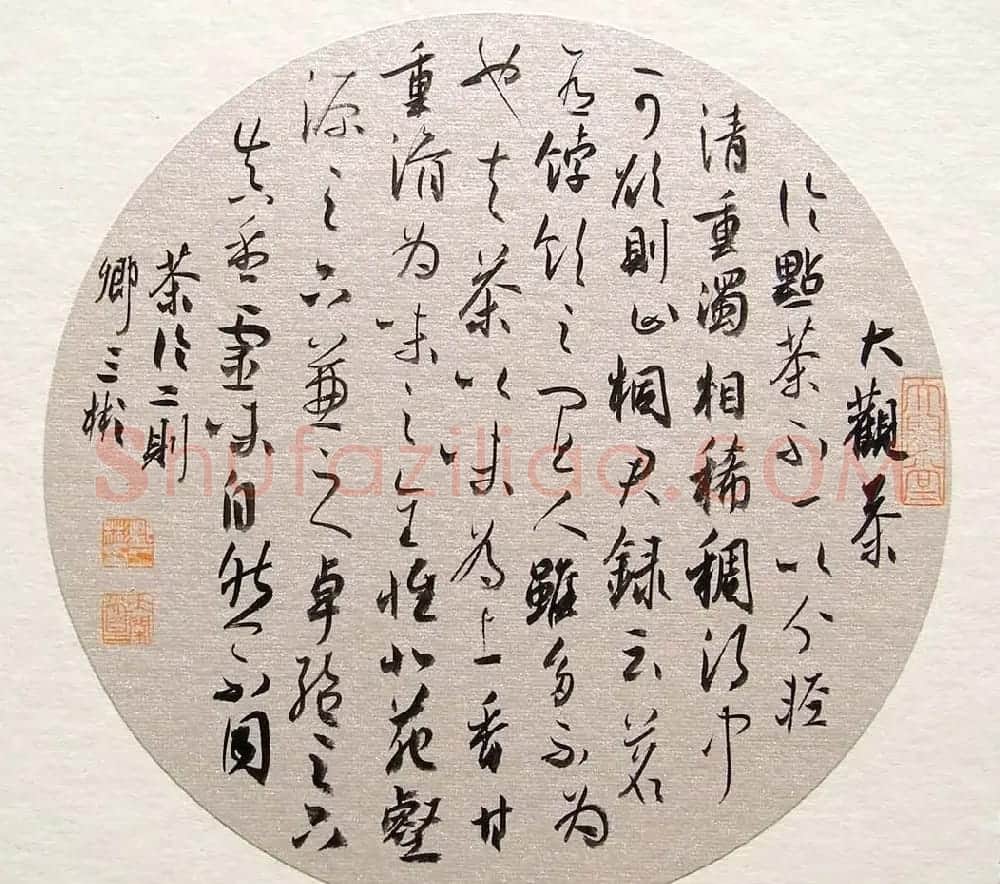 大觀茶
论點茶不一以分轻
清重濁相稀稠得中
可欲則止桐君録云茗
有饽飲之宜人雖多不为
也夫茶以味為上香甘
重滑为味之全惟北苑壑
源之品兼之卓绝之品
真香靈味自然不同
茶论二則
卿三彬
Shufaziliao.COM